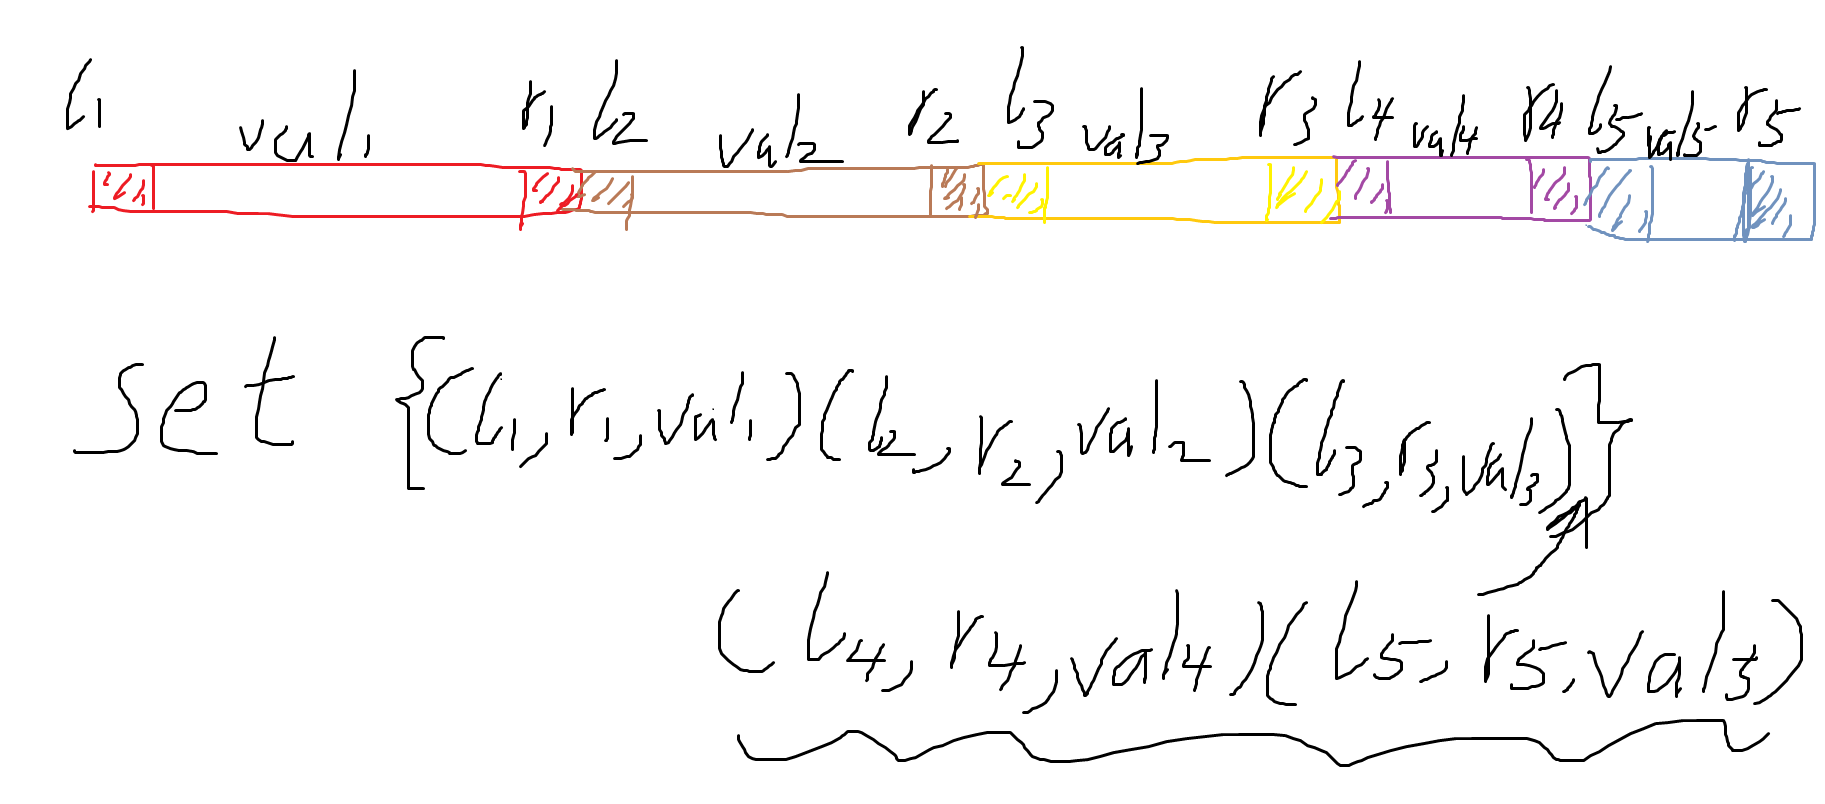 l1 val1 r1 l2 val2 r2 l3 val3 r3 l4 val4 r4 l5 val5 r5
set {(l1,r1,val1)(l2,r2,val2)(l3,r3,val3)}
(l4,r4,val4)(l5,r5,val5)